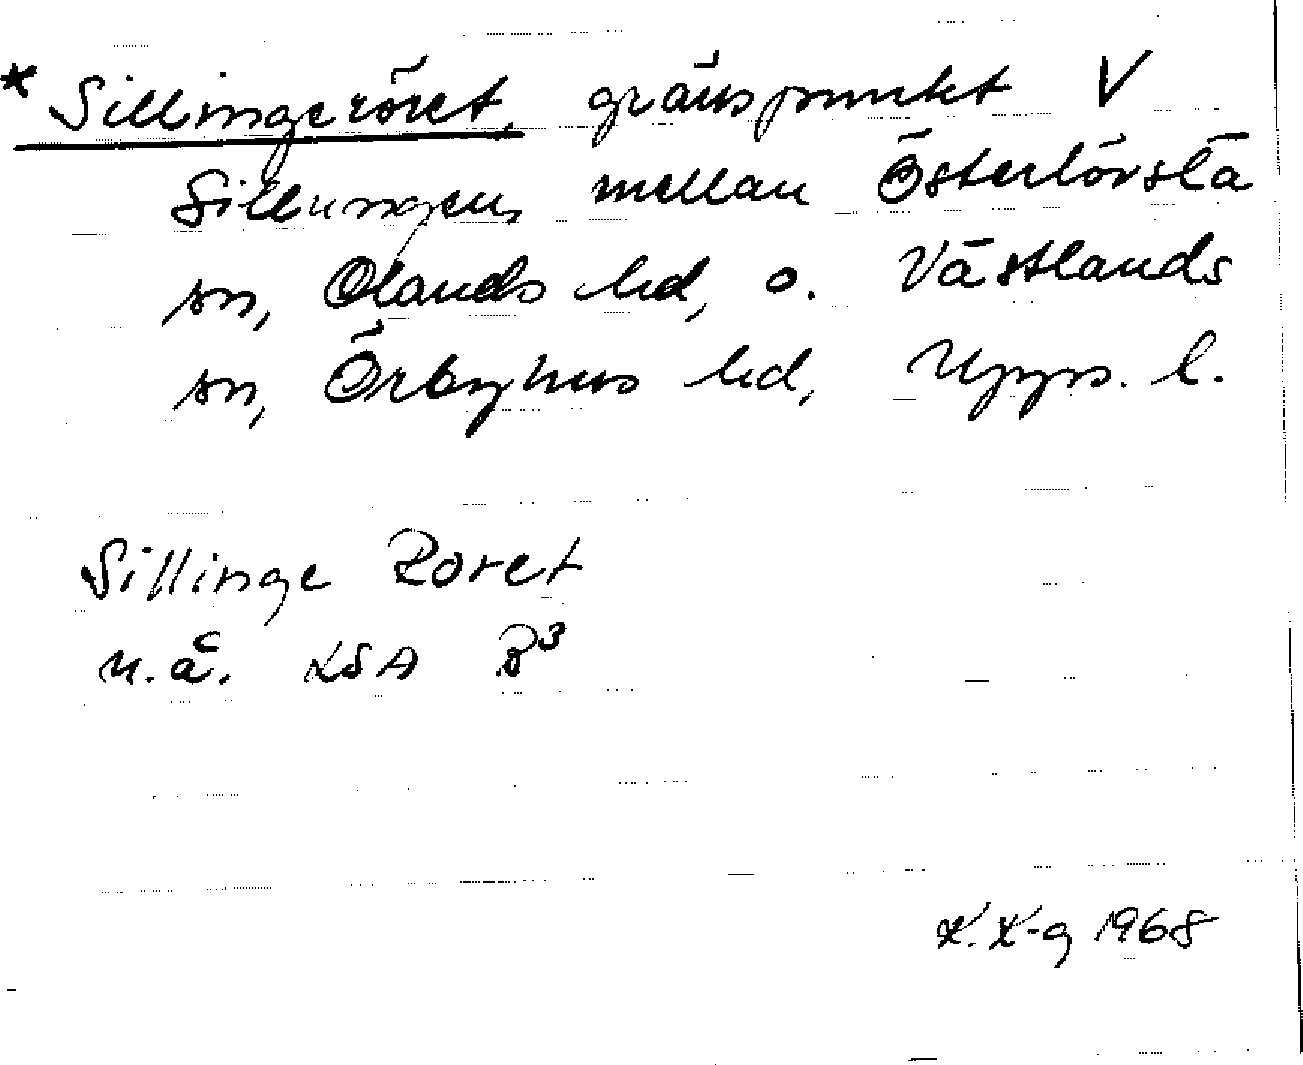 * Sillingeröret, gränspunkt V
Sillungen, mellan Österlövsta
sn, Olands hd, o. Västlands
sn, Örbyhus hd, Upps. l.
Sillinge Roret
u.å. LSA B³
K. K-g 1968